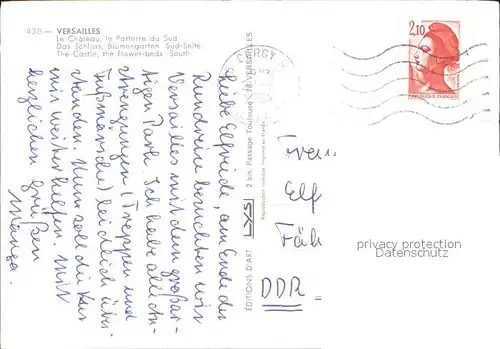 438 — VERSAILLES
Le Château, le Parterre du Sud
Das Schloss, Blumengarten Süd-Seite
The Castle, the flower-beds South
Liebe Elfriede, am Ende der
Rundreise besuchten wir
Versailles mit dem großar-
tigen Park. Ich habe alle An-
strengungen (Treppen und
Fußmärsche) leidlich über-
standen. Nun soll die Kur
mir weiterhelfen. Mit
herzlichen Grüßen
EDITIONS D'ART LYS 2 bis, Passage Toulouse - 78-VERSAILLES
Reproduction interdite
CERGY
2,10
REPUBLIQUE FRANÇAISE
Frau
Elf
Fäh
DDR
privacy protection
Datenschutz